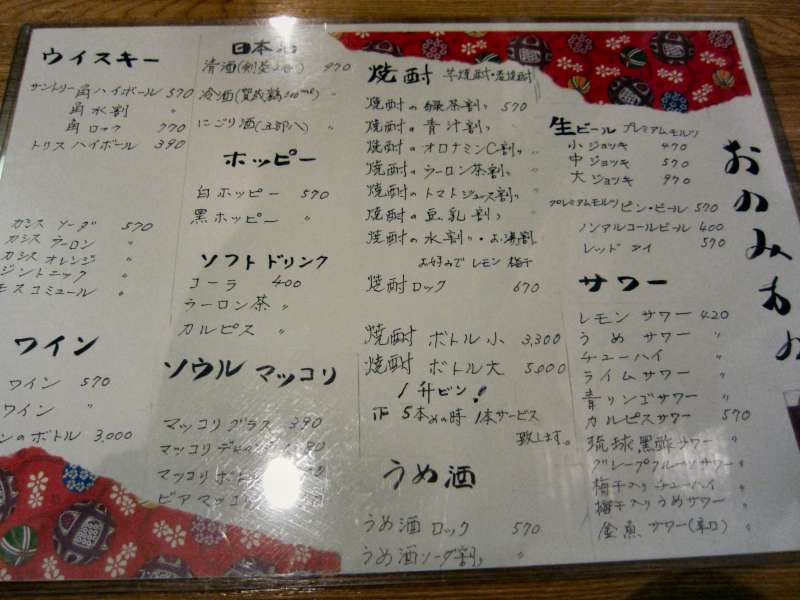 おのみもの
生ビール プレミアムモルツ
小ジョッキ 470
中ジョッキ 570
大ジョッキ 970
プレミアムモルツ ビン・ビール 570
ノンアルコールビール 400
レッド アイ 570
サワー
レモン サワー 420
うめ サワー 〃
チューハイ 〃
ライム サワー 〃
青リンゴサワー 〃
カルピスサワー 570
琉球黒酢サワー 〃
グレープフルーツサワー 〃
梅干入りチューハイ 〃
梅干入りうめサワー 〃
金魚サワー(辛口) 〃
焼酎 芋焼酎・麦焼酎
焼酎の緑茶割り 570
焼酎の青汁割り 〃
焼酎のオロナミンC割り 〃
焼酎のウーロン茶割り 〃
焼酎のトマトジュース割り 〃
焼酎の豆乳割り 〃
焼酎の水割り・お湯割
お好みでレモン 梅干
焼酎ロック 670
焼酎 ボトル 小 3,300
焼酎 ボトル 大 5,000
1升ビン!
正 5本めの時 1本サービス
致します。
うめ酒
うめ酒 ロック 570
うめ酒ソーダ割り 〃
日本酒
清酒 970
冷酒(賀茂鶴300ml) 〃
にごり酒 〃
ホッピー
白ホッピー 570
黒ホッピー 〃
ソフトドリンク
コーラ 400
ウーロン茶 〃
カルピス 〃
ソウル マッコリ
マッコリ グラス 390
マッコリ
マッコリ
ビアマッコリ
ウイスキー
サントリー 角ハイボール 570
角 水割 〃
角 ロック 770
トリス ハイボール 390
カシス ソーダ 570
カシス ウーロン 〃
カシス オレンジ 〃
ジントニック 〃
モスコミュール 〃
ワイン
ワイン 570
ワイン 〃
ンのボトル 3,000